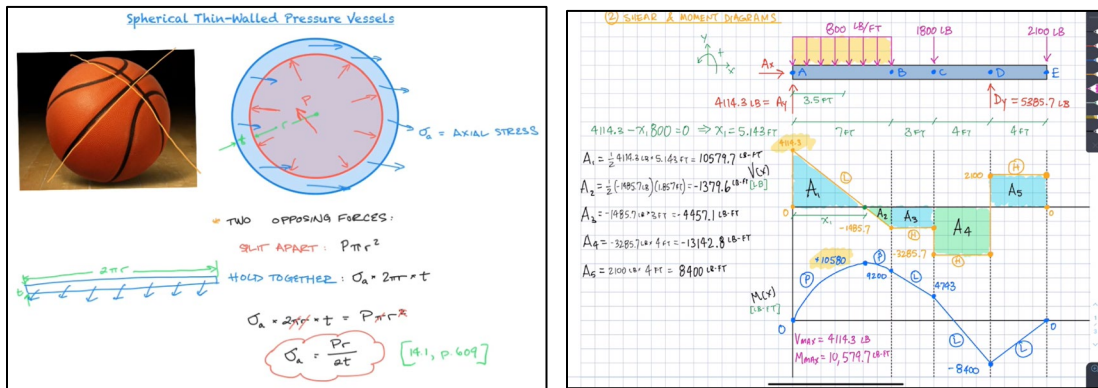 Spherical Thin-Walled Pressure Vessels
P
r
t
σa = AXIAL STRESS
* TWO OPPOSING FORCES:
SPLIT APART: Pπr²
2πr
t
HOLD TOGETHER: σa * 2πr * t
σa * 2πr * t = Pπr²
σa = Pr/2t
[14.1, p.609]
② SHEAR & MOMENT DIAGRAMS
800 LB/FT
1800 LB
2100 LB
Y
+
x
Ax
A
B
C
D
E
4114.3 LB = Ay
3.5 FT
Dy = 5385.7 LB
4114.3 - x₁800 = 0 ⇒ x₁ = 5.143 FT
7 FT
3 FT
4 FT
4 FT
A₁ = ½ 4114.3 LB * 5.143 FT = 10579.7 LB-FT
A₂ = ½(-1485.7 LB)(1.857 FT) = -1379.6 LB-FT
A₃ = -1485.7 LB * 3 FT = -4457.1 LB-FT
A₄ = -3285.7 LB * 4 FT = -13142.8 LB-FT
A₅ = 2100 LB * 4 FT = 8400 LB-FT
V(x)
[LB]
4114.3
L
A₁
0
x₁
-1485.7
A₂
A₃
H
-3285.7
A₄
H
2100
H
A₅
0
M(x)
[LB-FT]
+10580
P
P
9200
L
4743
0
L
-8400
L
0
VMAX = 4114.3 LB
MMAX = 10,579.7 LB-FT